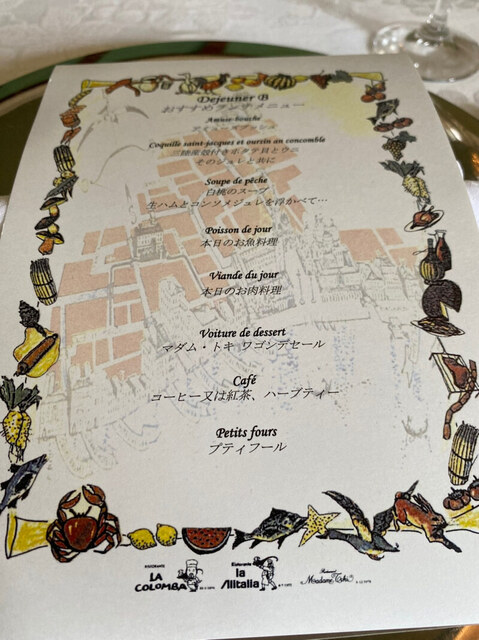 Dejeuner B
おすすめランチメニュー
Amuse-bouche
アミューズブッシュ
Coquille saint-jacques et oursin au concomble
三陸産殻付きホタテ貝とウニ
そのジュレと共に
Soupe de pêche
白桃のスープ
生ハムとコンソメジュレを浮かべて…
Poisson de jour
本日のお魚料理
Viande du jour
本日のお肉料理
Voiture de dessert
マダム・トキ ワゴンデセール
Café
コーヒー又は紅茶、ハーブティー
Petits fours
プティフール
RISTORANTE
LA
COLOMBA
Ristorante
la
Allitalia
Restaurant
Madame Toki